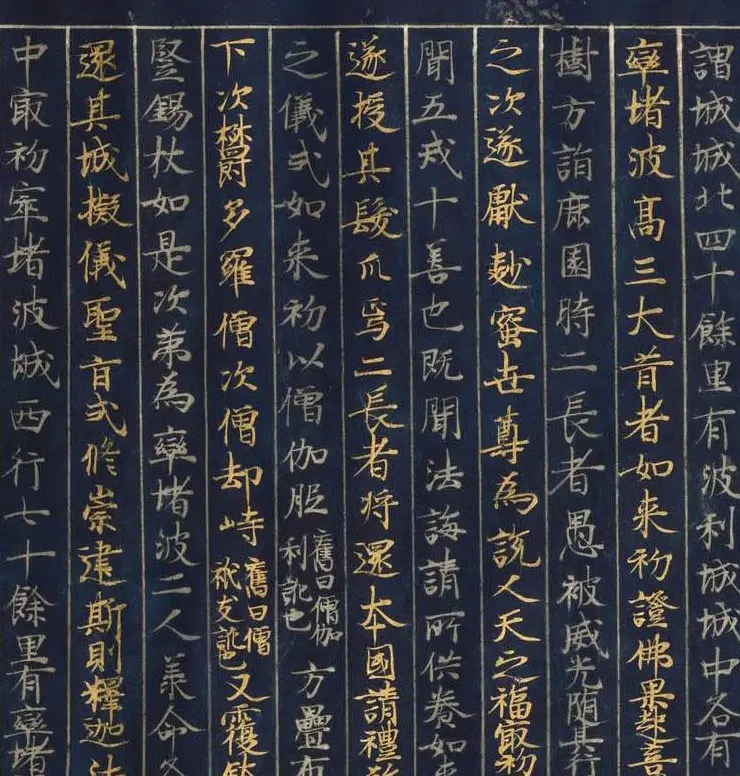 謂城城北四十餘里有波利城城中各有
窣堵波高三大昔者如来初證佛果起喜
樹方詣鹿園時二長者愚被威光随其行
之次遂獻麨蜜世尊為説人天之福最初
聞五戒十善也既聞法誨請所供養如来
遂授其髮爪焉二長者将還本國請禮
之儀式如来初以僧伽胝舊曰僧伽利訛也方疊布
下次欝多羅僧次僧却崎舊曰僧祇支訛也又覆鉢
竪錫杖如是次第為窣堵波二人承命各
還其城擬儀聖旨式修崇建斯則釋迦法
中最初窣堵波城西行七十餘里有窣堵